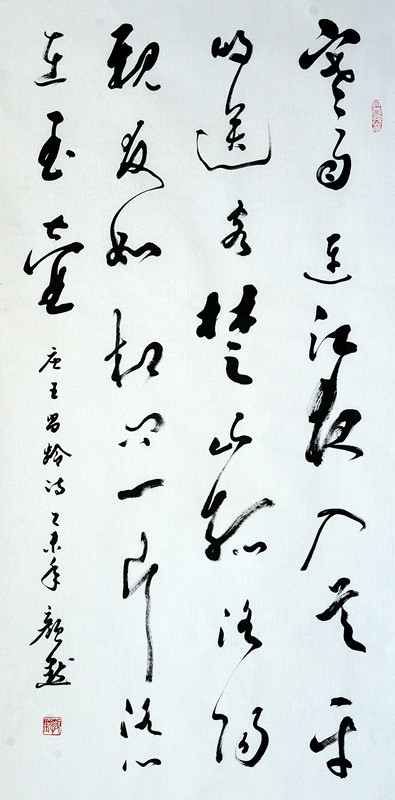 寒雨连江夜入吴平
明送客楚山孤洛陽
親友如相问一片冰心
在玉壺 唐王昌龄诗 乙未年 顔